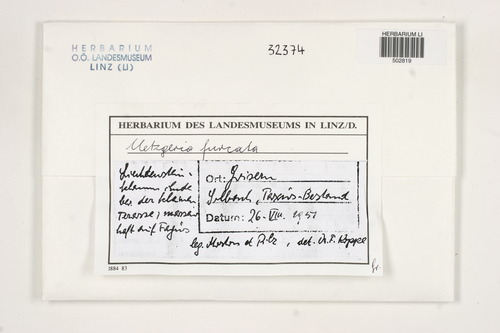 HERBARIUM
O.Ö. LANDESMUSEUM
LINZ (LI)
32374
HERBARIUM LI
502819
HERBARIUM DES LANDESMUSEUMS IN LINZ/D.
Metzgeria furcata
Liechtenstein-
klamm, Ende
bei der Klamm
Terrasse, massen
haft auf Fagus
Ort:
Taxus-Bestand
Datum: 26. VIII. 1951
leg. et Pilz, det. Dr. F. Koppe
1884 83